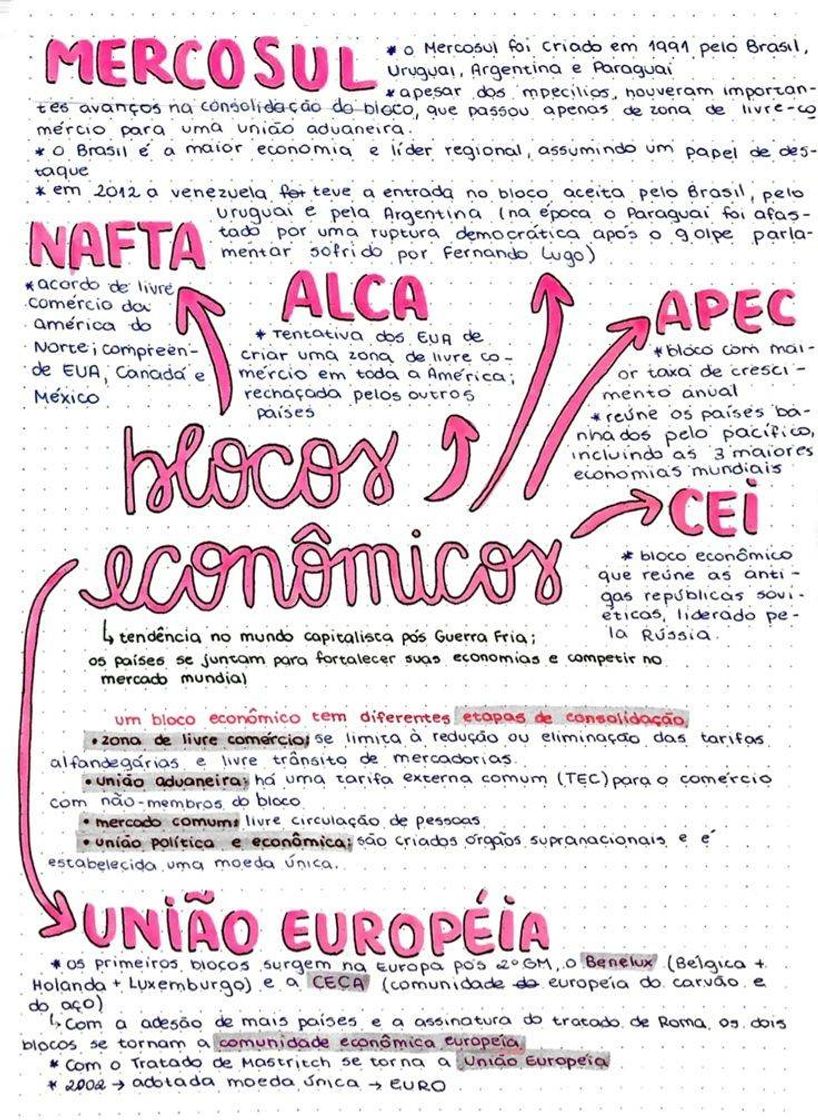 MERCOSUL
* o Mercosul foi criado em 1991 pelo Brasil,
Uruguai, Argentina e Paraguai
* apesar dos mpecilios, houveram importan-
tes avanços na consolidação do bloco, que passou apenas de zona de livre-co
mércio para uma união aduaneira.
* o Brasil é a maior economia e líder regional, assumindo um papel de des-
taque
* em 2012 a venezuela foi teve a entrada no bloco aceita pelo Brasil, pelo
uruguai e pela Argentina (na época o Paraguai foi afas-
tado por uma ruptura democrática após o golpe parla-
mentar sofrido por Fernando Lugo)
NAFTA
* acordo de livre
comércio da
américa do
Norte; compreen-
de EUA, Canadá e
México
ALCA
* Tentativa dos EUA de
criar uma zona de livre co-
mércio em toda a América;
rechaçada pelos outros
países
APEC
* bloco com mai-
or taxa de cresci-
mento anual
* reúne os países ba-
nhados pelo pacífico,
incluindo as 3 maiores
economias mundiais
CEI
* bloco econômico
que reúne as anti-
gas repúblicas sovi-
éticas, liderado pe-
la Rússia.
blocos
econômicos
↳ tendência no mundo capitalista pós Guerra Fria;
os países se juntam para fortalecer suas economias e competir no
mercado mundial
um bloco econômico tem diferentes etapas de consolidação
• zona de livre comércio; se limita à redução ou eliminação das tarifas
alfandegárias e livre trânsito de mercadorias.
• união aduaneira; há uma tarifa externa comum (TEC) para o comércio
com não-membros do bloco
• mercado comum; livre circulação de pessoas
• união política e econômica; são criados órgãos supranacionais e é
estabelecida uma moeda única.
UNIÃO EUROPÉIA
* os primeiros blocos surgem na Europa pós 2º GM, o Benelux (Bélgica +
Holanda + Luxemburgo) e a CECA (comunidade do europeia do carvão e
do aço)
↳ Com a adesão de mais países e a assinatura do tratado de Roma, os dois
blocos se tornam a comunidade econômica europeia
* Com o Tratado de Mastritch se torna a União Europeia
* 2002 → adotada moeda única → EURO